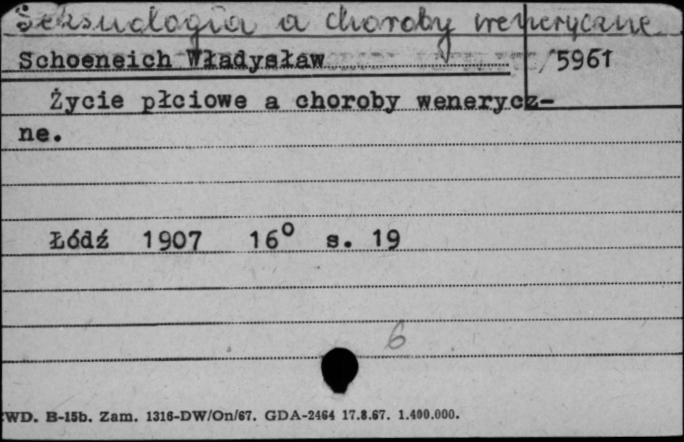 Seksuologia a choroby weneryczne
Schoeneich Władysław
5961
Życie płciowe a choroby wenerycz-
ne.
Łódź 1907 16° s. 19
6
WD. B-15b. Zam. 1316-DW/On/67. GDA-2464 17.8.67. 1.400.000.